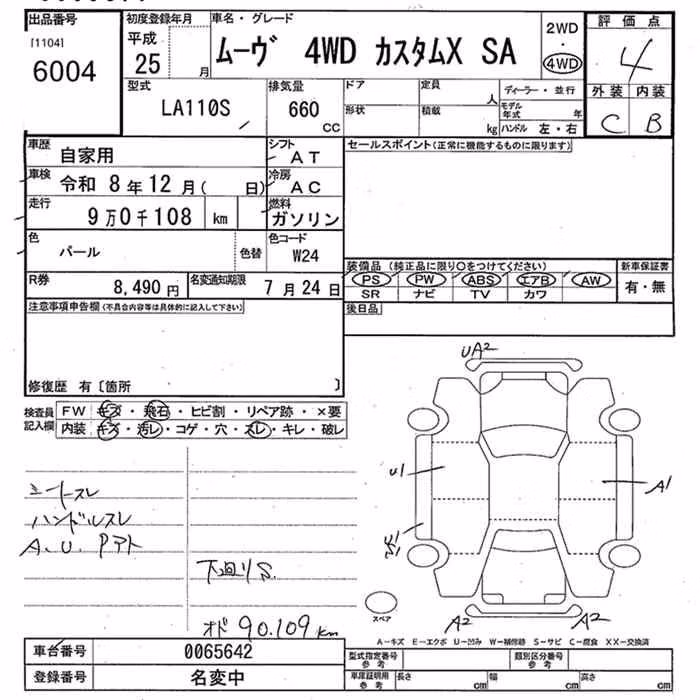 出品番号
[1104]
6004
初度登録年月
平成
25 月
車名・グレード
ムーヴ 4WD カスタムX SA
2WD
・
4WD
評価点
4
外装 内装
C B
型式
LA110S
排気量
660
CC
ドア
定員
人
形状
積載
kg
ディーラー・並行
モデル年式 年
ハンドル 左・右
車歴
自家用
シフト
AT
車検
令和 8年12月( 日)
冷房
AC
走行
9万0千108 km
燃料
ガソリン
色
パール
色替
色コード
W24
R券
8,490円
名変通知期限
7月24日
セールスポイント(正常に機能するものに限ります)
装備品 (純正品に限り○をつけてください)
PS PW ABS エアB AW
SR ナビ TV カワ
新車保証書
有・無
後日品
注意事項申告欄(不具合内容等は具体的に記入して下さい)
修復歴 有〔箇所 〕
検査員記入欄
FW キズ・飛石・ヒビ割・リペア跡・×要
内装 キズ・汚レ・コゲ・穴・スレ・キレ・破レ
シートスレ
ハンドルスレ
A.U.Pアト
下廻りS.
オド 90.109km
UA2
U1
A1
U1
S1
A2
A2
スペア
A−キズ E−エクボ U−凹み W−補修跡 S−サビ C−腐食 XX−交換済
車台番号 0065642
登録番号 名変中
型式指定番号
参考
類別区分番号
参考
車庫証明用
参考
長さ cm
幅 cm
高さ cm